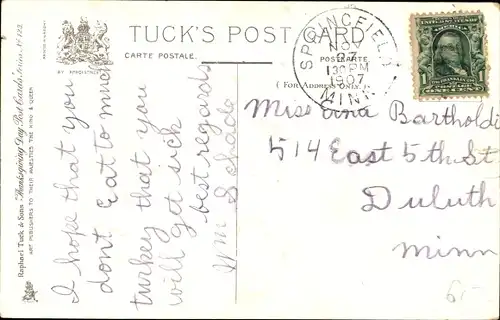 TUCK'S POST CARD
CARTE POSTALE.
POSTKARTE
( For Address Only. )
BY APPOINTMENT
Raphael Tuck & Sons' "Thanksgiving Day Post Cards" Series No 122.
ART PUBLISHERS TO THEIR MAJESTIES THE KING & QUEEN.
SPRINGFIELD
NOV
27
130PM
1907
MINN.
1
I hope that you
dont Eat to much
turkey that you
will get sick
best regards
Wm Schade
Miss Bartholdi
514 East 5th St
Duluth
Minn
6.-